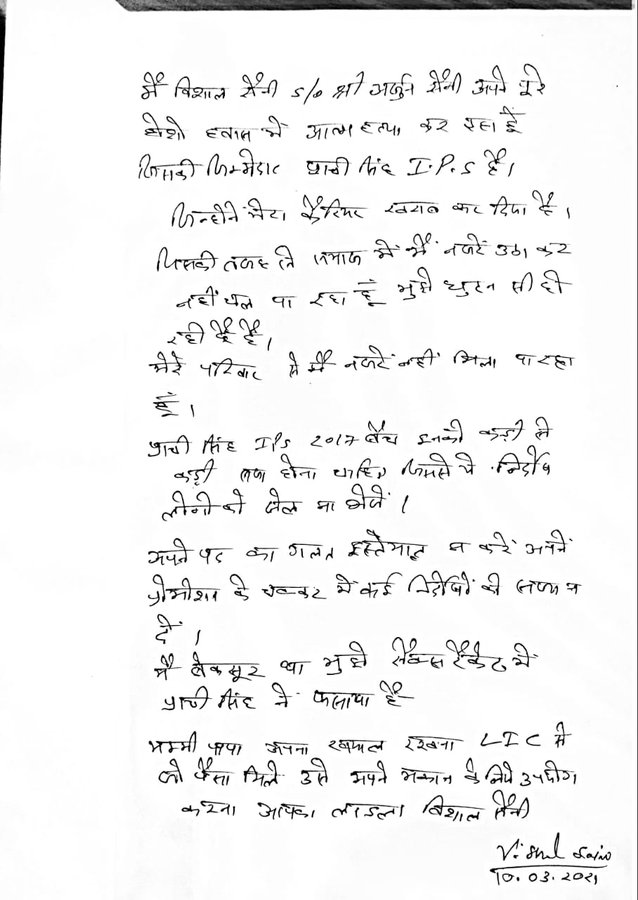 मैं विशाल सैनी S/o श्री अर्जुन सैनी अपने पूरे
होशो हवास में आत्महत्या कर रहा हूँ
जिसकी जिम्मेदार प्राची सिंह I.P.S है।
जिन्होने मेरा कैरियर खराब कर दिया है।
जिसकी वजह से समाज में मैं नजरें उठा कर
नहीं चल पा रहा हूँ मुझे घुटन सी हो
रही है।
मेरे परिवार से मैं नजरें नहीं मिला पा रहा
हूँ।
प्राची सिंह IPS 2017 बैच इनको कड़ी से
कड़ी सजा होना चाहिए जिससे ये निर्दोष
लोगो को जेल ना भेजें।
अपने पद का गलत इस्तेमाल न करें अपने
प्रोमोशन के चक्कर में कई निर्दोषों को सजा न
दें।
मैं बेकसूर था मुझे सैक्स रैकेट में
प्राची सिंह ने फसाया है
मम्मी पापा अपना ख्याल रखना LIC से
जो पैसा मिले उसे अपने मकान के लिये उपयोग
करना आपका लाडला विशाल सैनी
Vishal Saini
10.03.2021